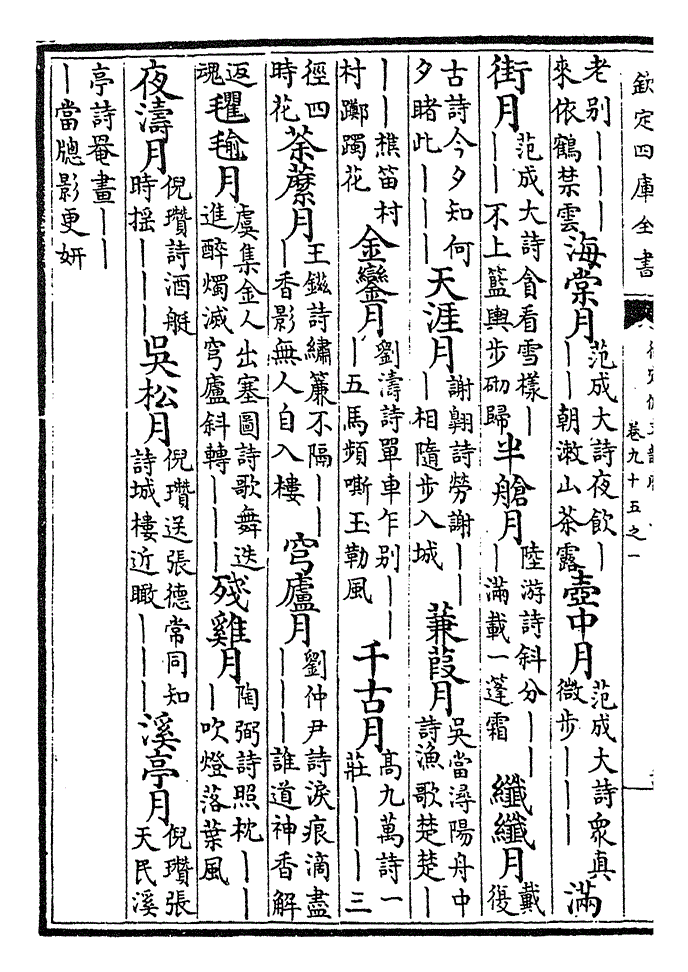 欽定四庫全書
卷九十五之一
老别｜｜｜｜
來依鶴禁雲
海棠月
范成大詩夜飲｜
｜｜朝漱山茶露
壺中月
范成大詩衆真
微步｜｜｜
滿
街月
范成大詩貪看雪樣｜
｜｜不上籃輿步砌歸
半艙月
陸游詩斜分｜｜
｜滿載一蓬霜
纖纖月
戴
復
古詩今夕知何
夕睹此｜｜｜
天涯月
謝翺詩勞謝｜｜
｜相隨步入城
蒹葭月
吳當潯陽舟中
詩漁歌楚楚｜
｜｜樵笛村
村躑躅花
金鑾月
劉濤詩單車乍别｜｜
｜五馬頻嘶玉勒風
千古月
高九萬詩一
莊｜｜｜三
徑四
時花
荼蘼月
王鎡詩繡簾不隔｜｜
｜香影無人自入樓
穹廬月
劉仲尹詩淚痕滴盡
｜｜｜誰道神香解
返
魂
氍毹月
虞集金人出塞圖詩歌舞迭
進醉燭滅穹廬斜轉｜｜｜
殘雞月
陶弼詩照枕｜｜
｜吹燈落葉風
夜濤月
倪瓚詩酒艇
時摇｜｜｜
吳松月
倪瓚送張德常同知
詩城樓近瞰｜｜｜
溪亭月
倪瓚張
天民溪
亭詩罨畫｜｜
｜當牕影更妍